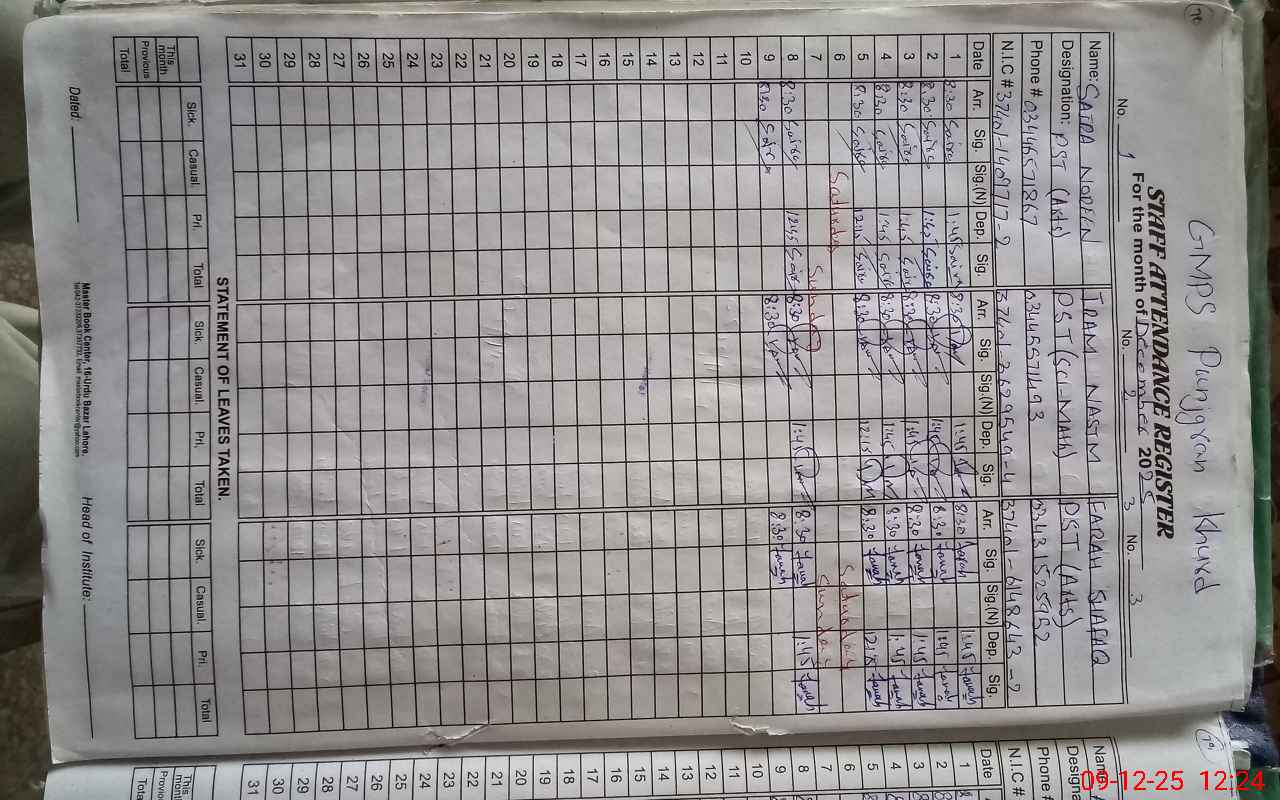 78
GMPS Punjgran Khurd
STAFF ATTENDANCE REGISTER
For the month of December 2025
No. 1 No. 2 No. 3
Name: SAIRA NOREEN IRAM NASIM FARAH SHAFIQ
Designation: PST (Arts) PST (SCI-MATH) PST (Arts)
Phone # 03446571867 03445571493
N.I.C #
Date Arr. Sig. Sig.(N) Dep. Sig. Arr. Sig. Sig.(N) Dep. Sig. Arr. Sig. Sig.(N) Dep. Sig.
1 8:30 Saira 1:45 Saira 8:30 1:45 8:30 farah 1:45 farah
2 8:30 Saira 1:45 Saira 8:30 1:45 8:30 farah 1:45 farah
3 8:30 Saira 1:45 Saira 8:30 1:45 8:30 farah 1:45 farah
4 8:30 Saira 1:45 Saira 8:30 1:45 8:30 farah 1:45 farah
5 8:30 Saira 12:15 Saira 8:30 12:15 8:30 farah 12:15 farah
6 Saturday Saturday
7 Sunday Sunday
8 8:30 Saira 12:45 Saira 8:30 1:45 8:30 farah 1:45 farah
9 8:30 Saira 8:30 8:30 farah
10
11
12
13
14
15
16
17
18
19
20
21
22
23
24
25
26
27
28
29
30
31
STATEMENT OF LEAVES TAKEN.
Sick. Casual. Pri. Total Sick. Casual. Pri. Total Sick. Casual. Pri. Total
This month
Previous
Total
Dated: Head of Institute:
Master Book Center, 16-Urdu Bazar Lahore.
79
Name
Designa
Phone #
N.I.C #
Date
1
2
3
4
5
6
7
8
9
10
11
12
13
14
15
16
17
18
19
20
21
22
23
24
25
26
27
28
29
30
31
This month
Previous
Total
09-12-25 12:24